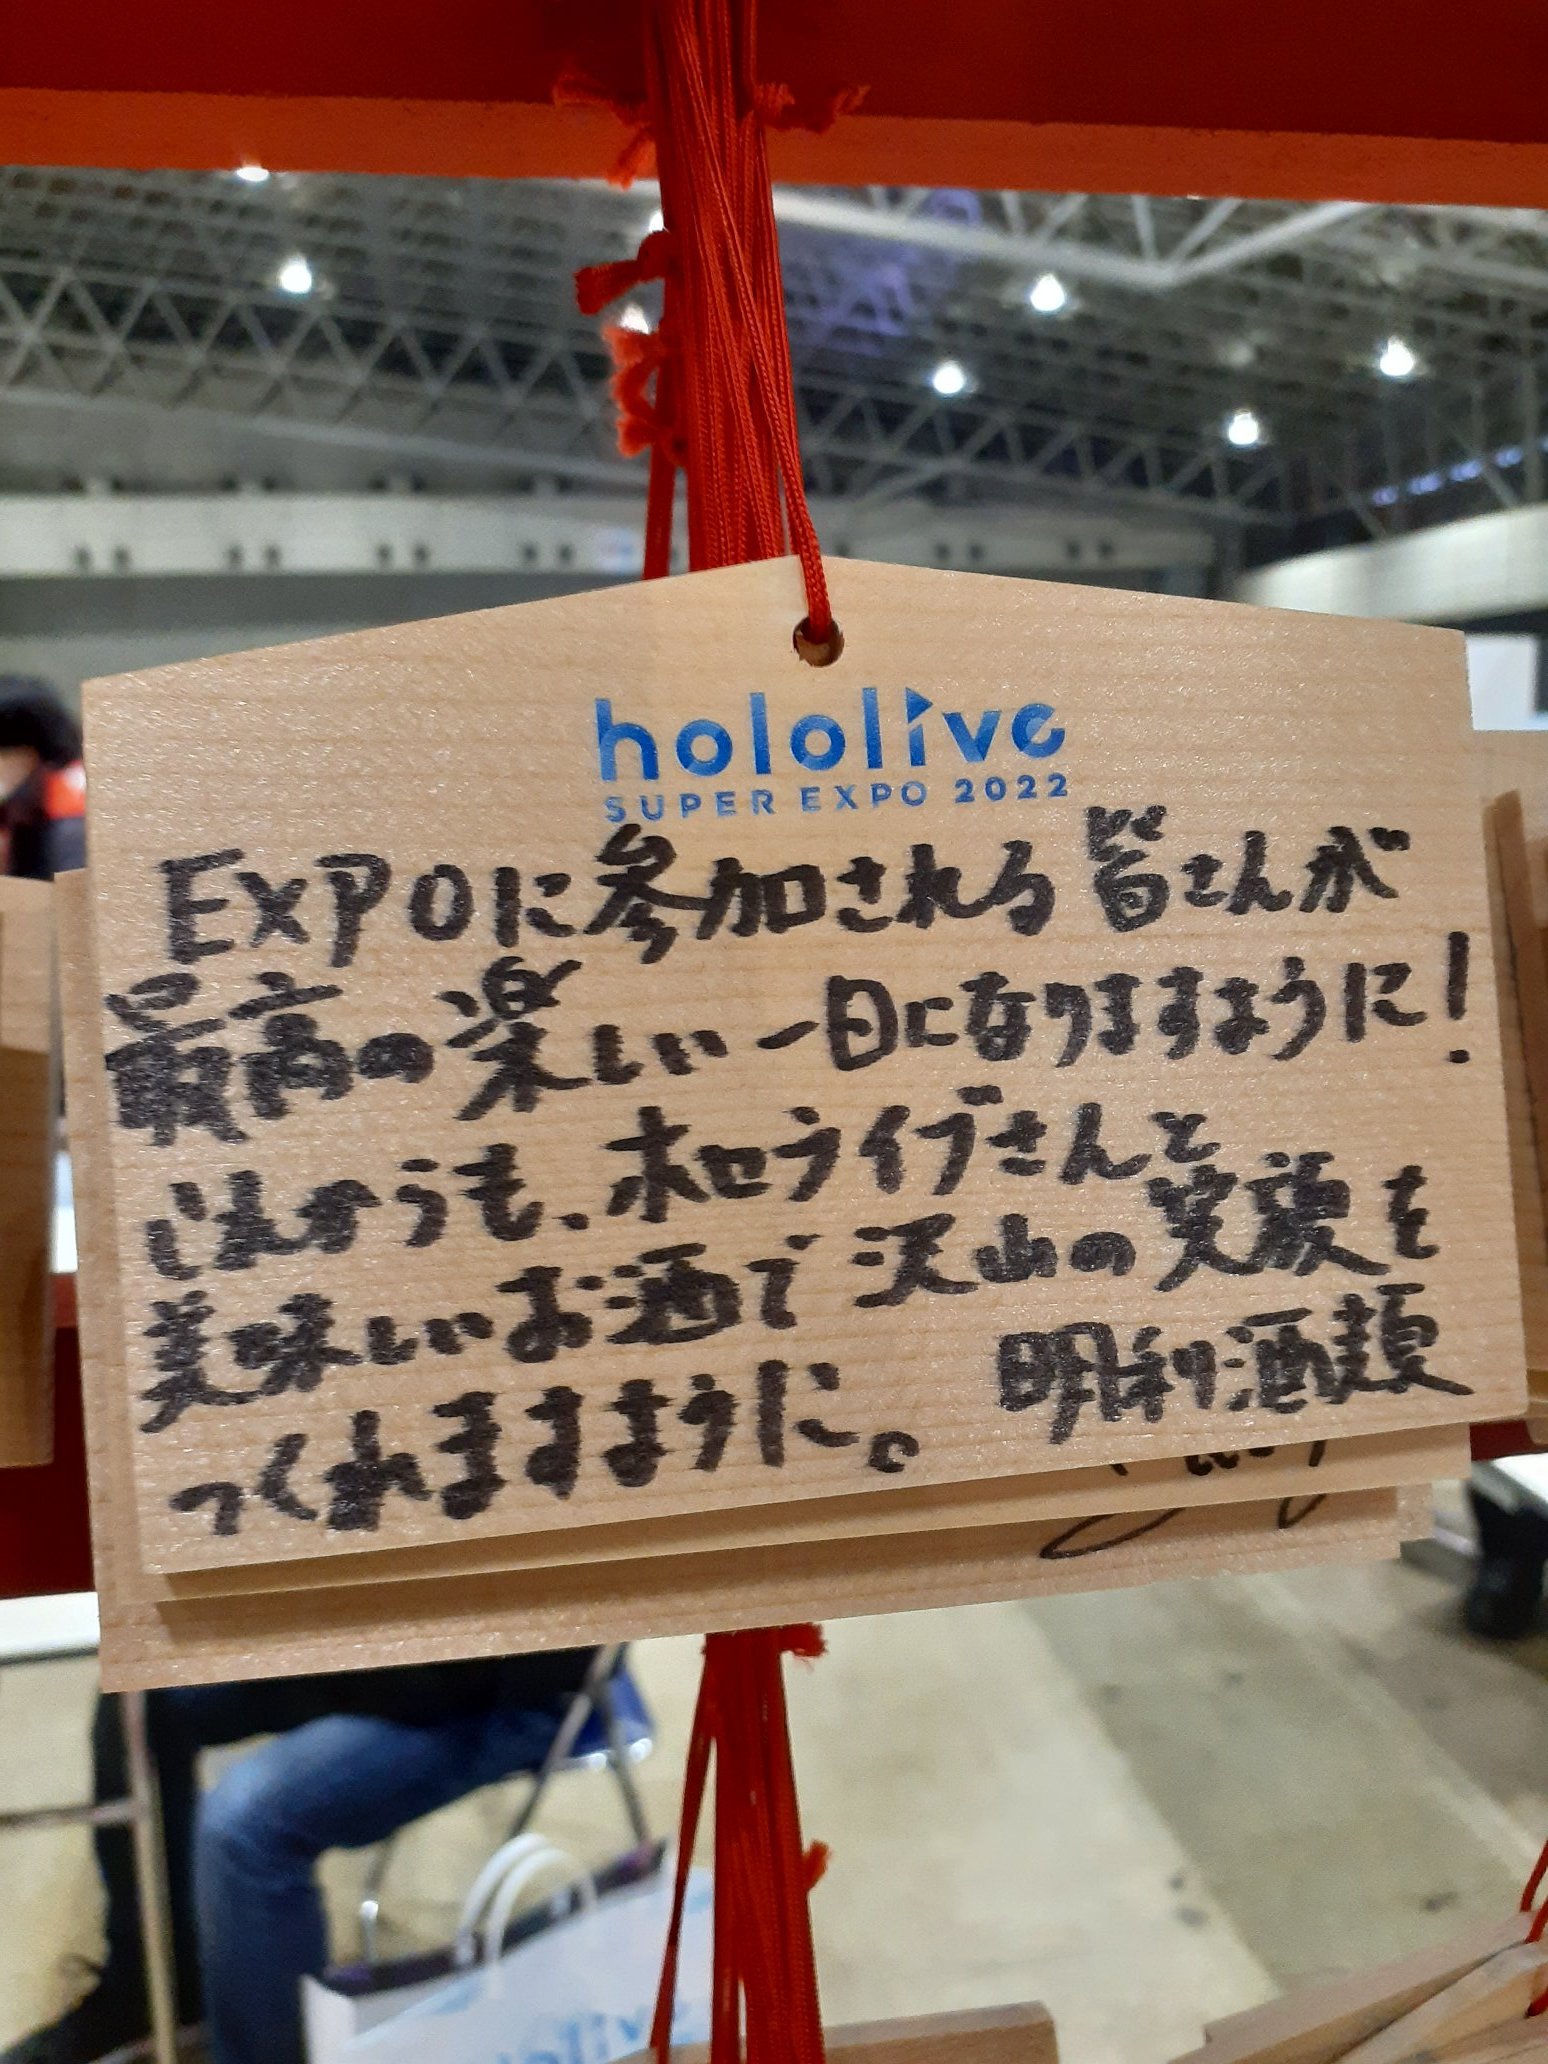 hololive
SUPER EXPO 2022
EXPOに参加される皆さんが
最高の楽しい一日になりますように!
これからも、ホロライブさんと
美味しいお酒で沢山の笑顔を
つくれますように。
明利酒類
hololive